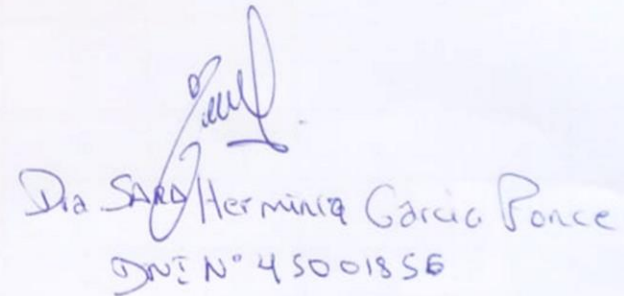 Dra SARA Herminia Garcia Ponce
DNI N° 45001856